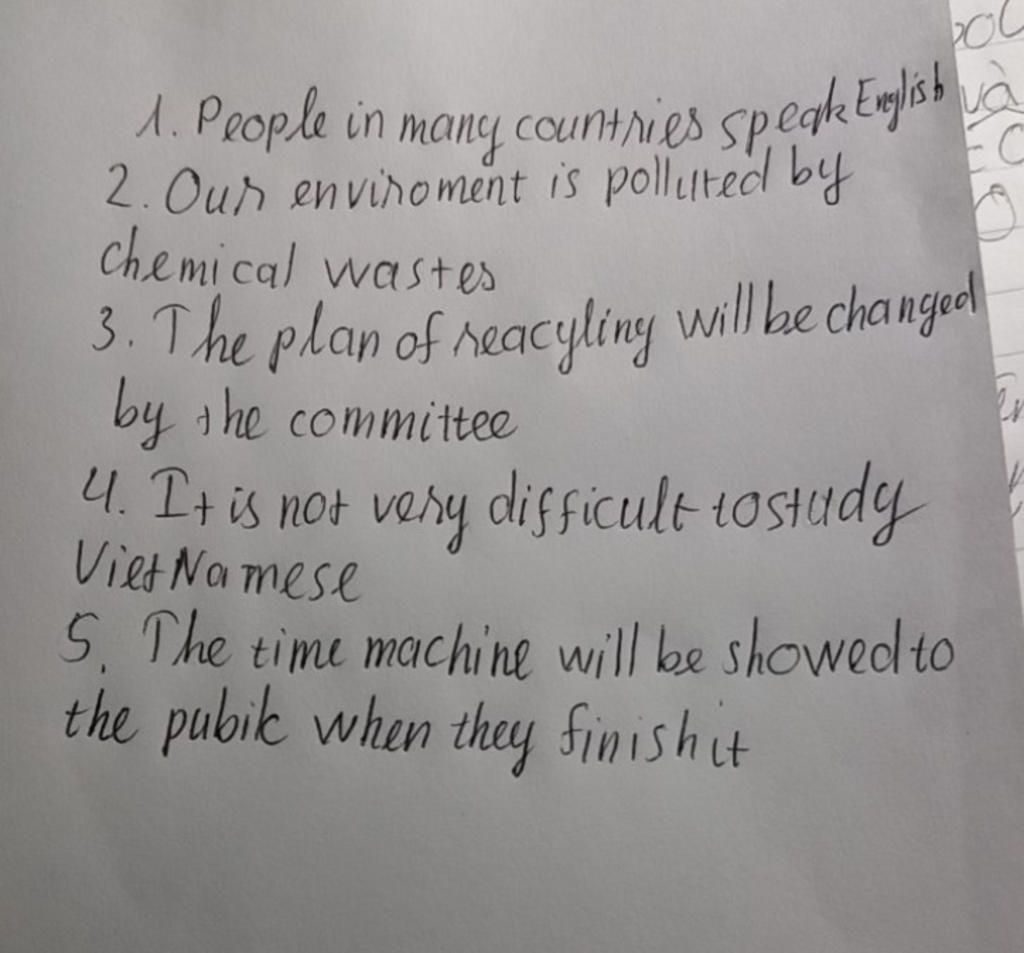 1. People in many countries speak English
2. Our enviroment is polluted by
chemical wastes
3. The plan of reacyling will be changed
by the committee
4. It is not very difficult to study
VietNamese
5. The time machine will be showed to
the pubik when they finish it
và